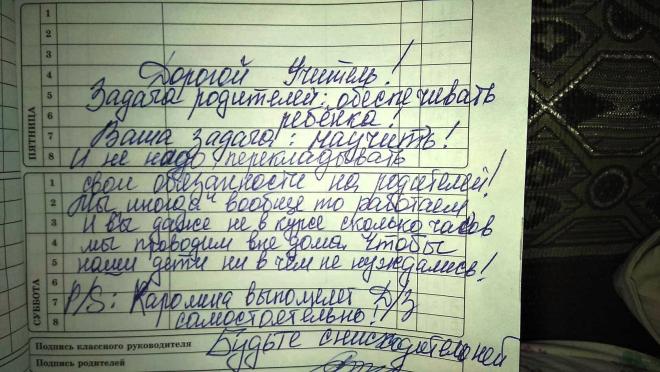 1
2
3
4
Дорогой Учитель!
5
Задача родителей: обеспечивать
6
ребёнка!
7
Ваша задача: научить!
8
И не надо перекладывать
ПЯТНИЦА
1
свои обязанности на родителей!
2
Мы иногда вообще то работаем
3
И вы даже не в курсе сколько часов
4
мы проводим вне дома. Чтобы
5
наши дети ни в чём не нуждались!
6
P/S: Каролина выполняет Д/З
7
самостоятельно!
8
СУББОТА
Будьте снисходительней
Подпись классного руководителя
Подпись родителей